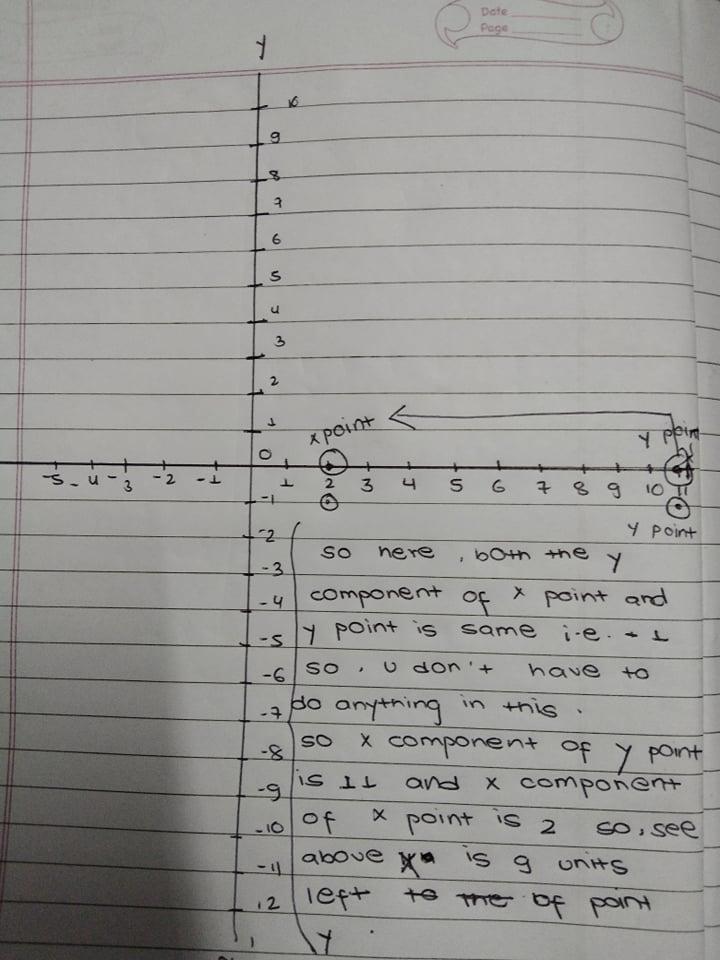 Date
Page
y
10
9
8
7
6
5
4
3
2
1
x point
y point
0
-5 -4 -3 -2 -1 1 2 3 4 5 6 7 8 9 10 11
-1
y point
-2
so here, both the y
-3
-4 component of x point and
-5 y point is same i.e. -1
-6 so, u don't have to
-7 do anything in this.
-8 so x component of y point
-9 is 11 and x component
-10 of x point is 2 so, see
-11 above x is 9 units
12 left to the of point
y.